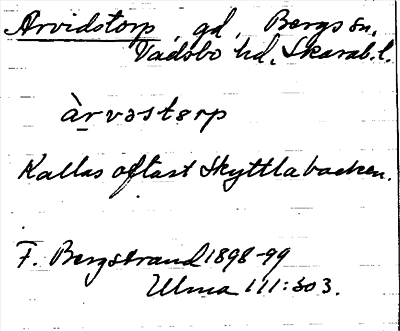 Arvidstorp, gd, Bergs sn,
Vadsbo hd, Skarab. l.
àrvəstərp
Kallas oftast Skyttlabacken.
F. Bergstrand 1898-99
Ulma 111:303.